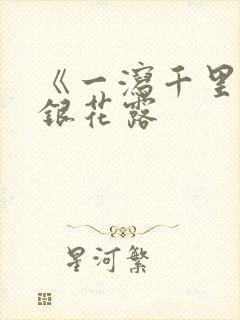 《一泻千里
银花露
星河繁